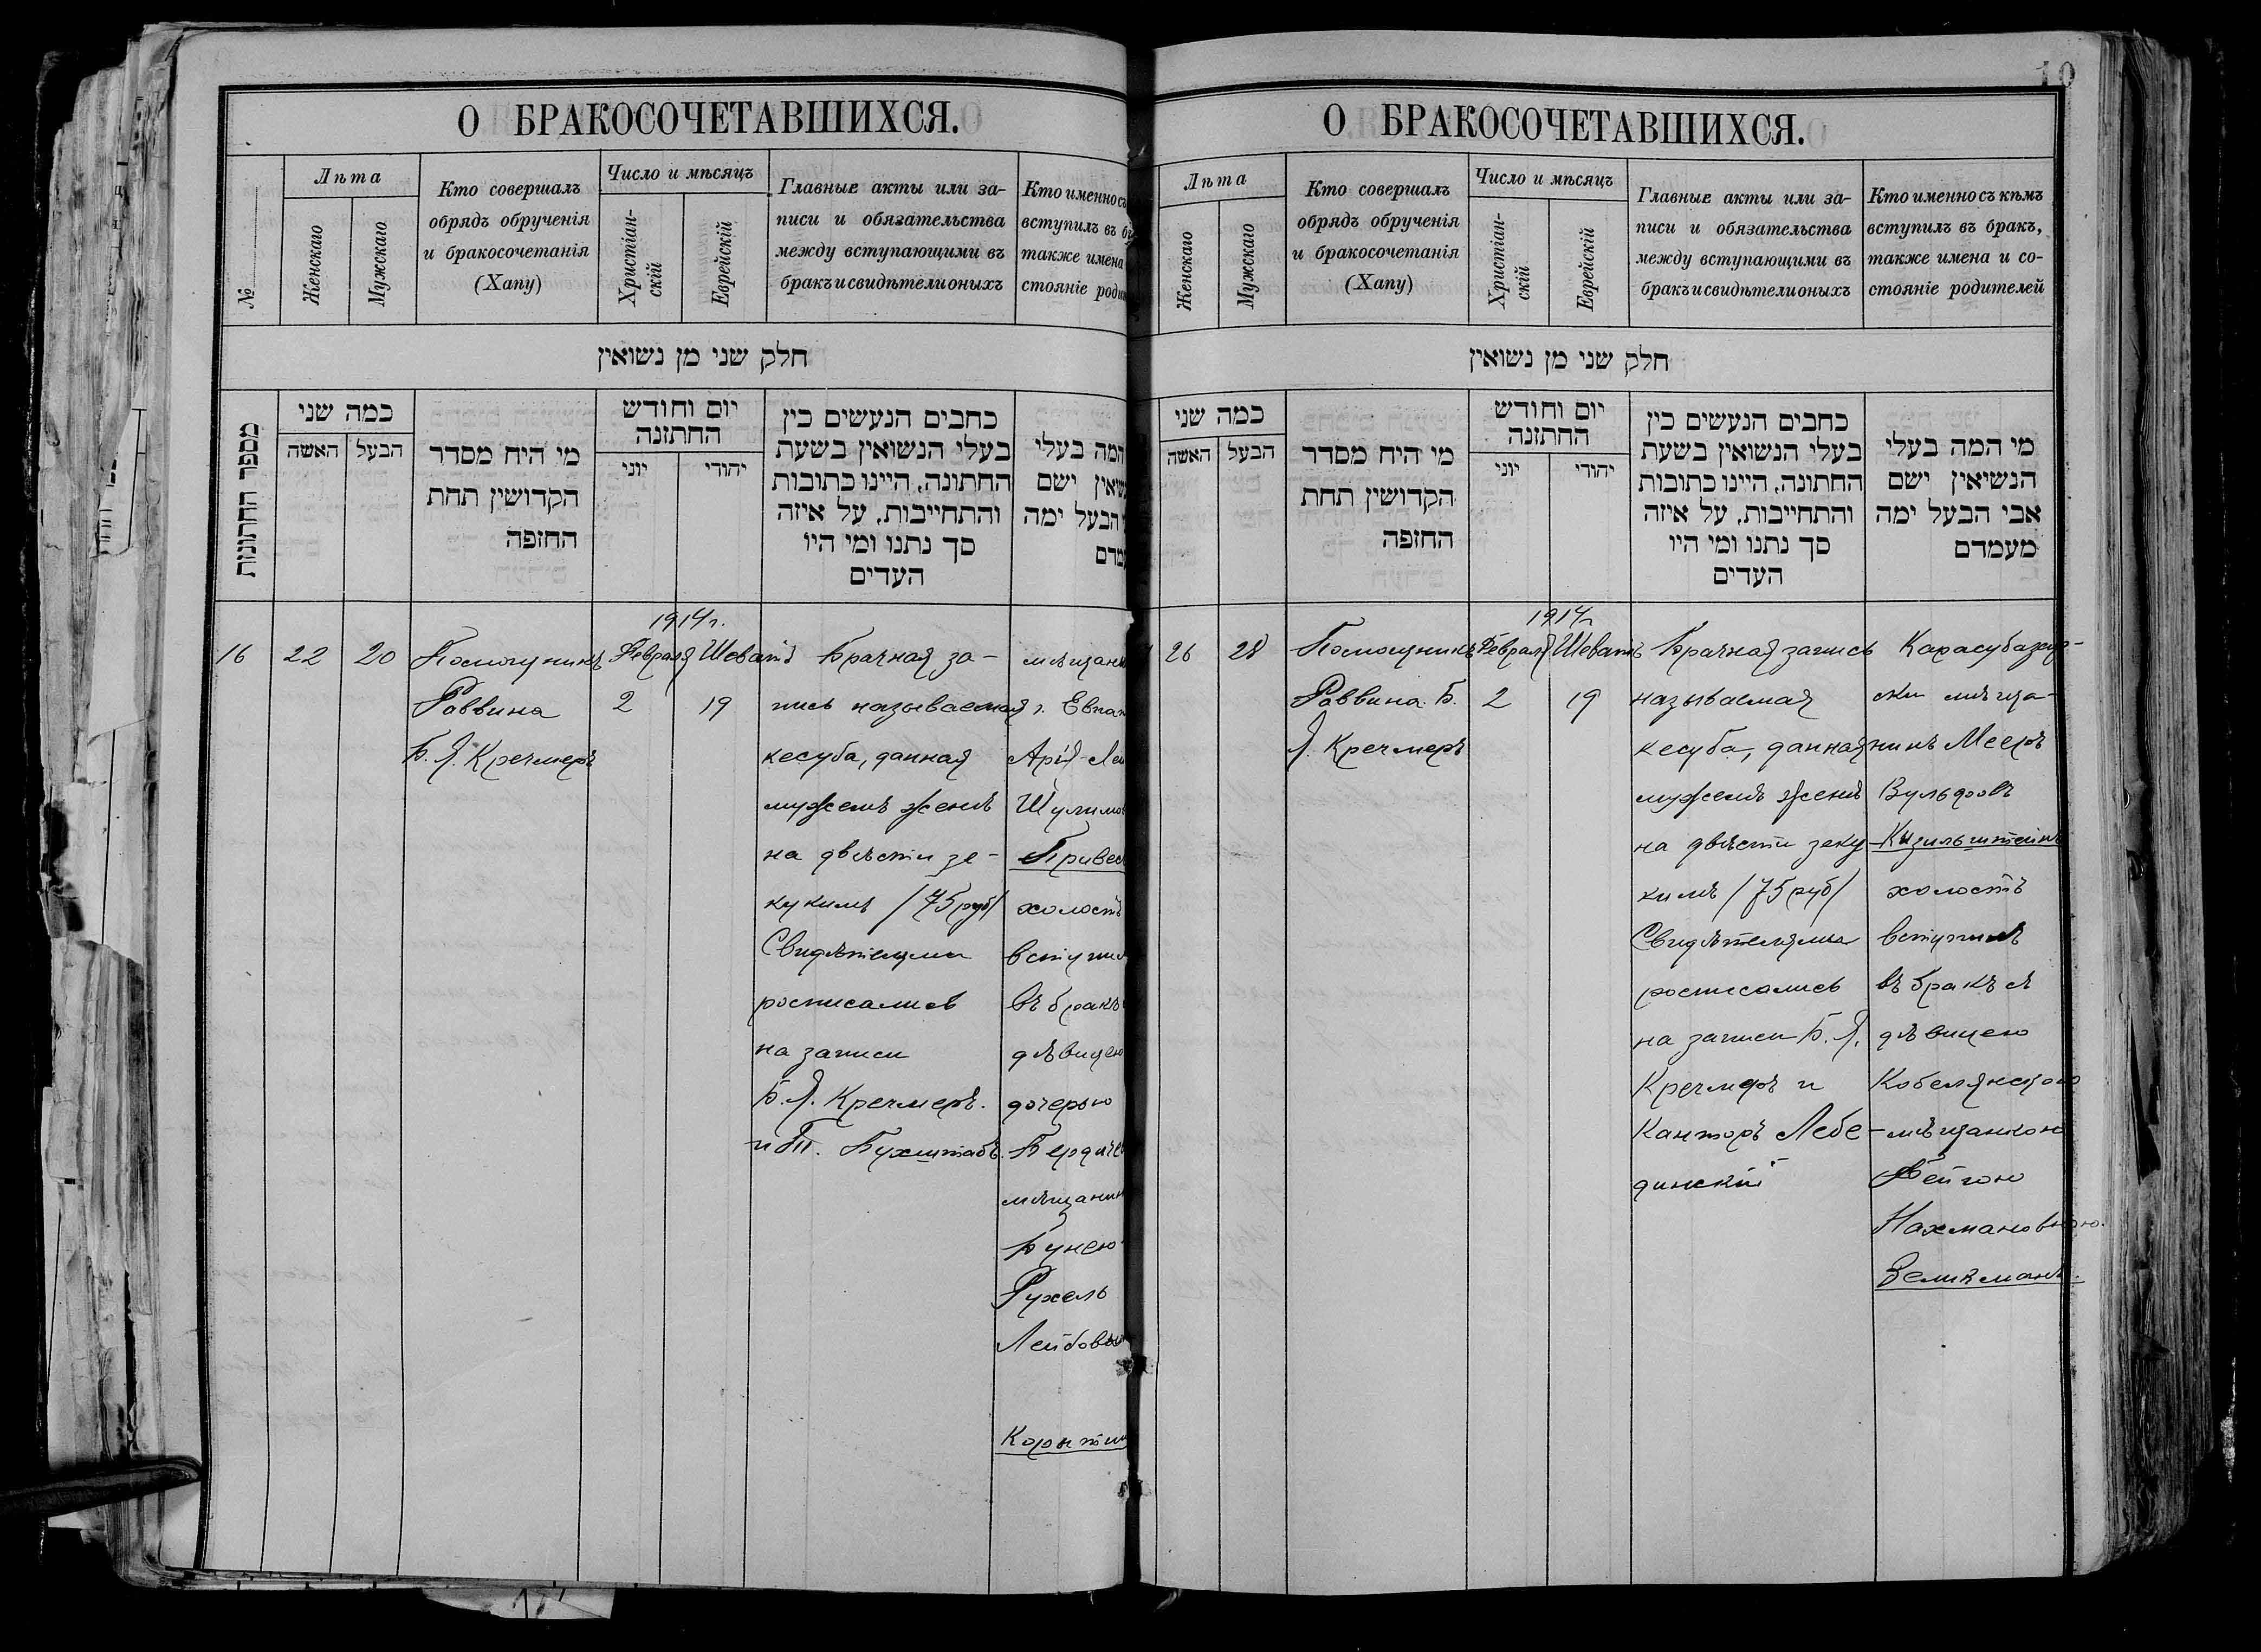 О БРАКОСОЧЕТАВШИХСЯ.
№
Лѣта
Женскаго
Мужскаго
Кто совершалъ
обрядъ обрученія
и бракосочетанія
(Хапу)
Число и мѣсяцъ
Христіан-
скій
Еврейскій
Главные акты или за-
писи и обязательства
между вступающими въ
бракъ и свидѣтели оныхъ
Кто именно съ
вступилъ въ б
также имена
стояніе роди
חלק שני מן נשואין
מספר החתונות
כמה שני
האשה
הבעל
מי היח מסדר
הקדושין תחת
החופה
יום וחודש
החתונה
יוני
יהודי
כתבים הנעשים בין
בעלי הנשואין בשעת
החתונה, היינו כתובות
והתחייבות, על איזה
סך נתנו ומי היו
העדים
המה בעלי
שאין ישם
הבעל ימה
מדם
1914 г.
16
22
20
Помощникъ
Раввина
Б. Я. Кречмеръ
Февраля
2
Шеватъ
19
Брачная за-
пись называемая
кесуба, данная
мужемъ женѣ
на двѣсти зе-
кукимъ /75 руб/
Свидѣтелями
росписались
на записи
Б. Я. Кречмеръ.
и П. Бухштабъ.
мѣщани
г. Евпат
Арія-Ле
Шулимов
Привес
холостъ
вступил
въ бракъ
дѣвицею
дочерью
Бердичев
мѣщанин
Бунею
Рухель
Лейбовн
Корытни
10
О БРАКОСОЧЕТАВШИХСЯ.
Лѣта
Женскаго
Мужскаго
Кто совершалъ
обрядъ обрученія
и бракосочетанія
(Хапу)
Число и мѣсяцъ
Христіан-
скій
Еврейскій
Главные акты или за-
писи и обязательства
между вступающими въ
бракъ и свидѣтели оныхъ
Кто именно съ кѣмъ
вступилъ въ бракъ,
также имена и со-
стояніе родителей
חלק שני מן נשואין
כמה שני
האשה
הבעל
מי היח מסדר
הקדושין תחת
החופה
יום וחודש
החתונה
יוני
יהודי
כתבים הנעשים בין
בעלי הנשואין בשעת
החתונה, היינו כתובות
והתחייבות, על איזה
סך נתנו ומי היו
העדים
מי המה בעלי
הנשיאין ישם
אבי הבעל ימה
מעמדם
1914 г
26
28
Помощникъ
Раввина Б.
Я. Кречмеръ
Февраля
2
Шеватъ
19
Брачная запись
называемая
кесуба, данная
мужемъ женѣ
на двѣсти зеку-
кимъ /75 руб/
Свидѣтелями
росписались
на записи Б. Я.
Кречмеръ и
Канторъ Лебе-
динскій
Карасубазар-
скій мѣща-
нинъ Мееръ
Вульфовъ
Кизильштейнъ
холостъ
вступилъ
въ бракъ съ
дѣвицею
Кобелянскою
мѣщанкою
Фейгою
Нахмановною.
Зелихманъ.